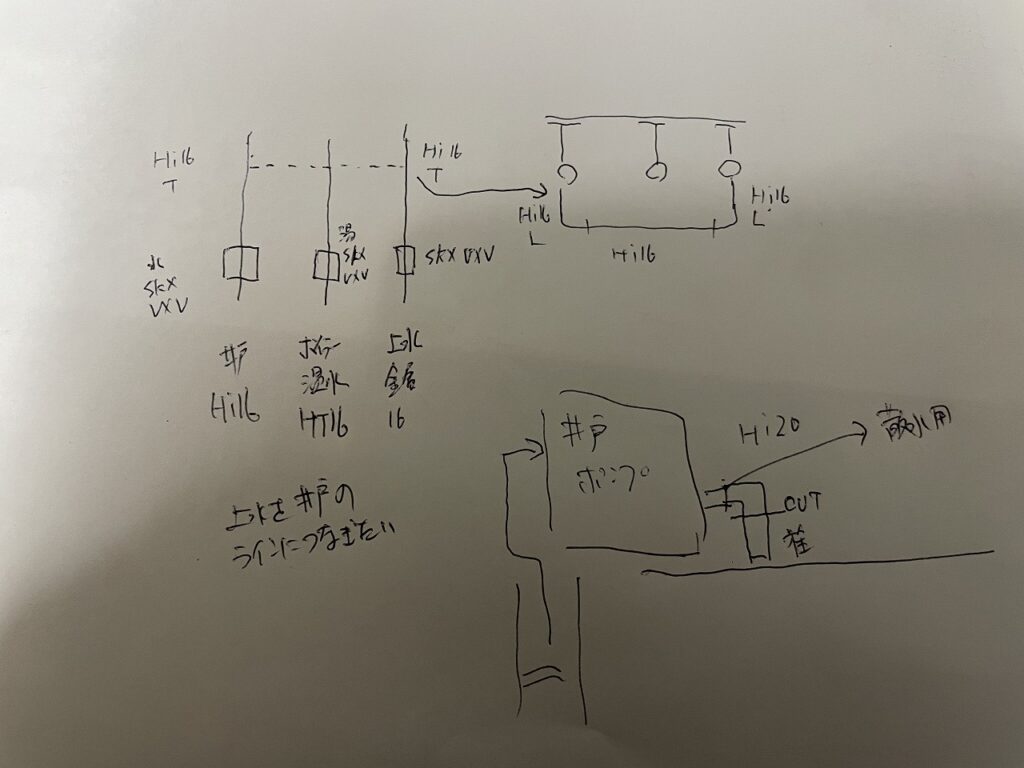 Hi16
T
Hi16
T
Hi16
L
Hi16
Hi16
L
水
SKX
VXV
湯
SKX
VXV
SKX VXV
井戸
Hi16
ボイラー
温水
HT16
上水
金属
16
上水を井戸の
ラインにつなぎたい
井戸
ポンプ
Hi20
散水用
CUT